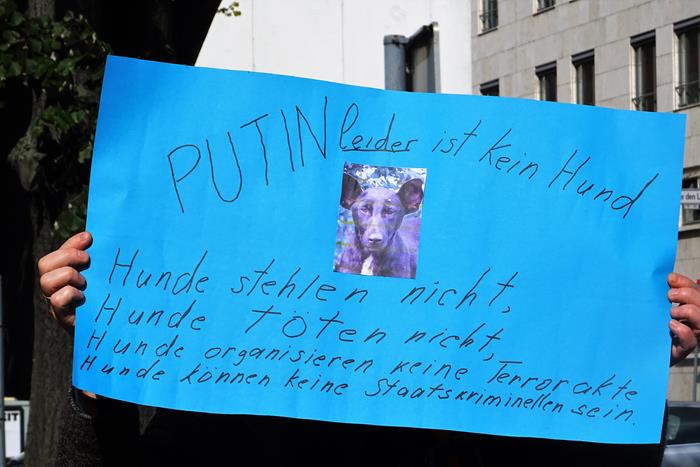 PUTIN leider ist kein Hund
Hunde stehlen nicht,
Hunde töten nicht,
Hunde organisieren keine Terrorakte
Hunde können keine Staatskriminellen sein.